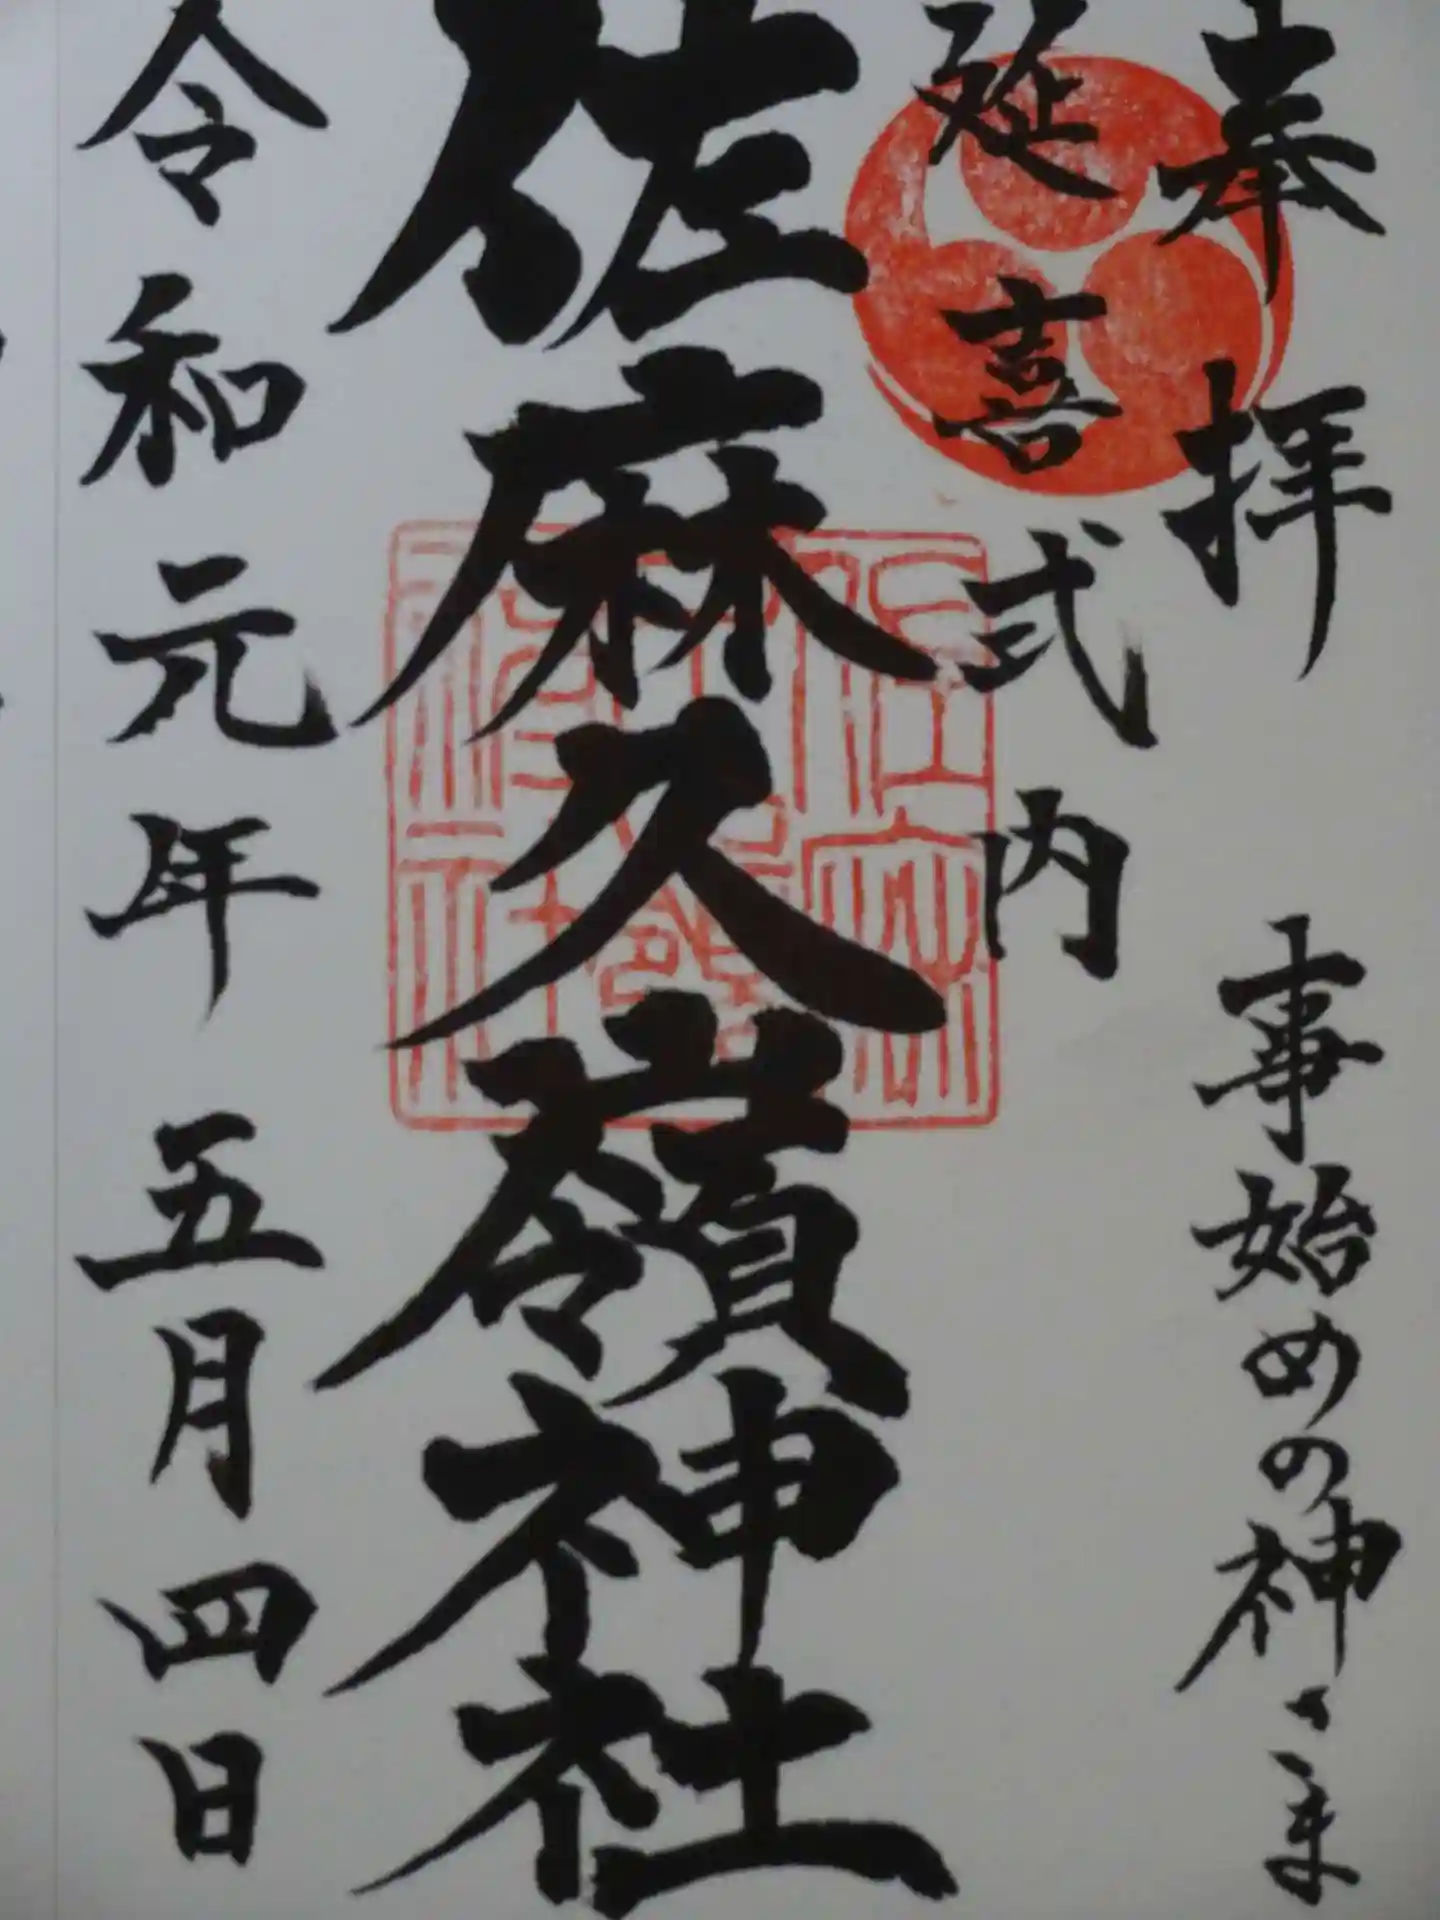 奉拝 事始めの神さま
延喜式内
佐麻久嶺神社
令和元年 五月四日